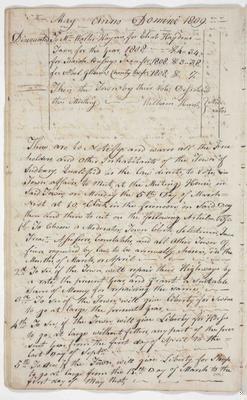 May Anno Domini 1809
Discounted To Mr. Wallis Haynes for Elisha Haydens
Taxes for the Year 1808
for Parish Ministers
for State & County taxes for 1808
Then the Town by their vote Dissolved
this Meeting William Hunt
These are to Notify and warn all the Free
holders and other Inhabitants of the Town of
Sudbury Qualified as the law directs to vote in
Town affairs to Meet at the Meeting House in
said Town on Monday the 5th Day of March
Next at 10 o'Clock in the forenoon on said Day
then and there to act on the following Articles Viz.
1st To Choose a Moderator, Town Clerk, Selectmen, Town
Treasr. Assessors Constables, and all other Town Of-
ficers required by law to be annually chosen, in the
Months of March or April
2d To See if the Town will repair their Highways by
a rate the present Year and Grant a Suitable
Sum of Money for
3d To See if the Town will give Liberty for Swine
to go at large the present Year
4th To See if the Town will give Liberty for
to go at large without fetters any part of the pres-
ent Year from the first day of April to the
last Day of Septr.
5th To See if the Town will give Liberty for Sheep
to go at large from the 12th Day of March to the
first day of May Next